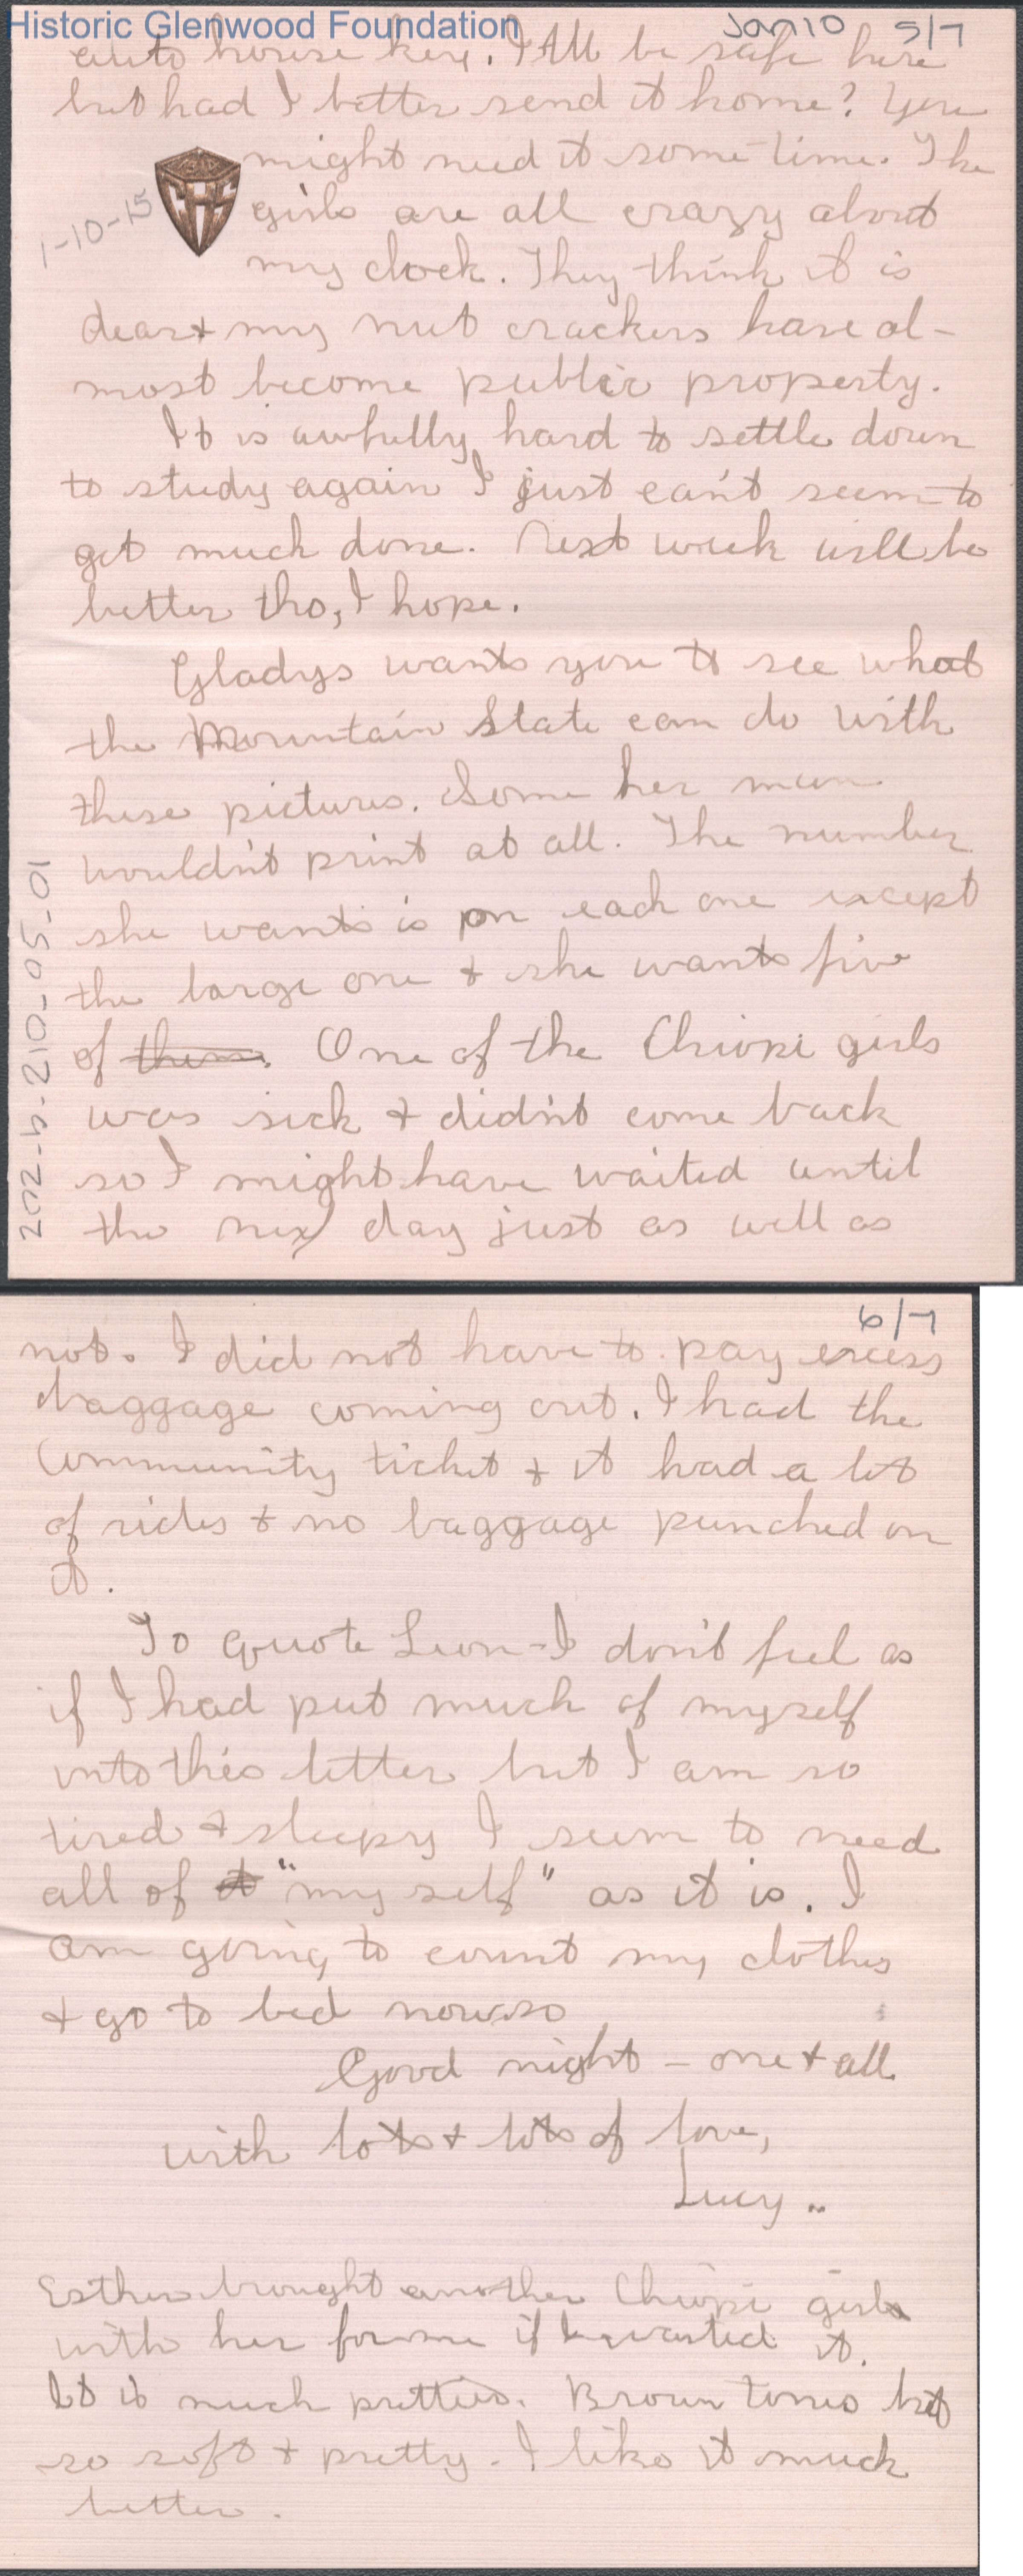 Historic Glenwood Foundation
Jan 10 5/7
auto house key. It'll be safe here
but had I better send it home? You
might need it some time. The
1-10-15
girls are all crazy about
my clock. They think it is
dear & my nut crackers have al-
most become public property.
It is awfully hard to settle down
to study again I just can't seem to
get much done. Next week will be
better tho, I hope.
Gladys wants you to see what
the Mountain State can do with
these pictures. Some her man
wouldn't print at all. The number
she wants is on each one except
the large one & she wants five
of them. One of the girls
was sick & didn't come back
so I might have waited until
the nex day just as well as
202-b-210-05-01
6/7
not. I did not have to pay excess
baggage coming out. I had the
Community ticket & it had a lot
of rides & no baggage punched on
it.
To quote Leon - I don't feel as
if I had put much of myself
into this letter but I am so
tired & sleepy I seem to need
all of it "my self" as it is. I
am going to count my clothes
& go to bed now so
Good night - one & all
with lots & lots of love,
Lucy..
Esther brought another girl
with her for me if I wanted it.
It is much prettier. Brown tones but
so soft & pretty. I like it much
better.